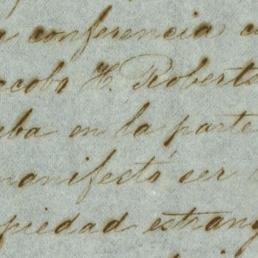 a conferencia c
acobo H. Roberts
aba en la parte
manifestó ser
piedad estrang